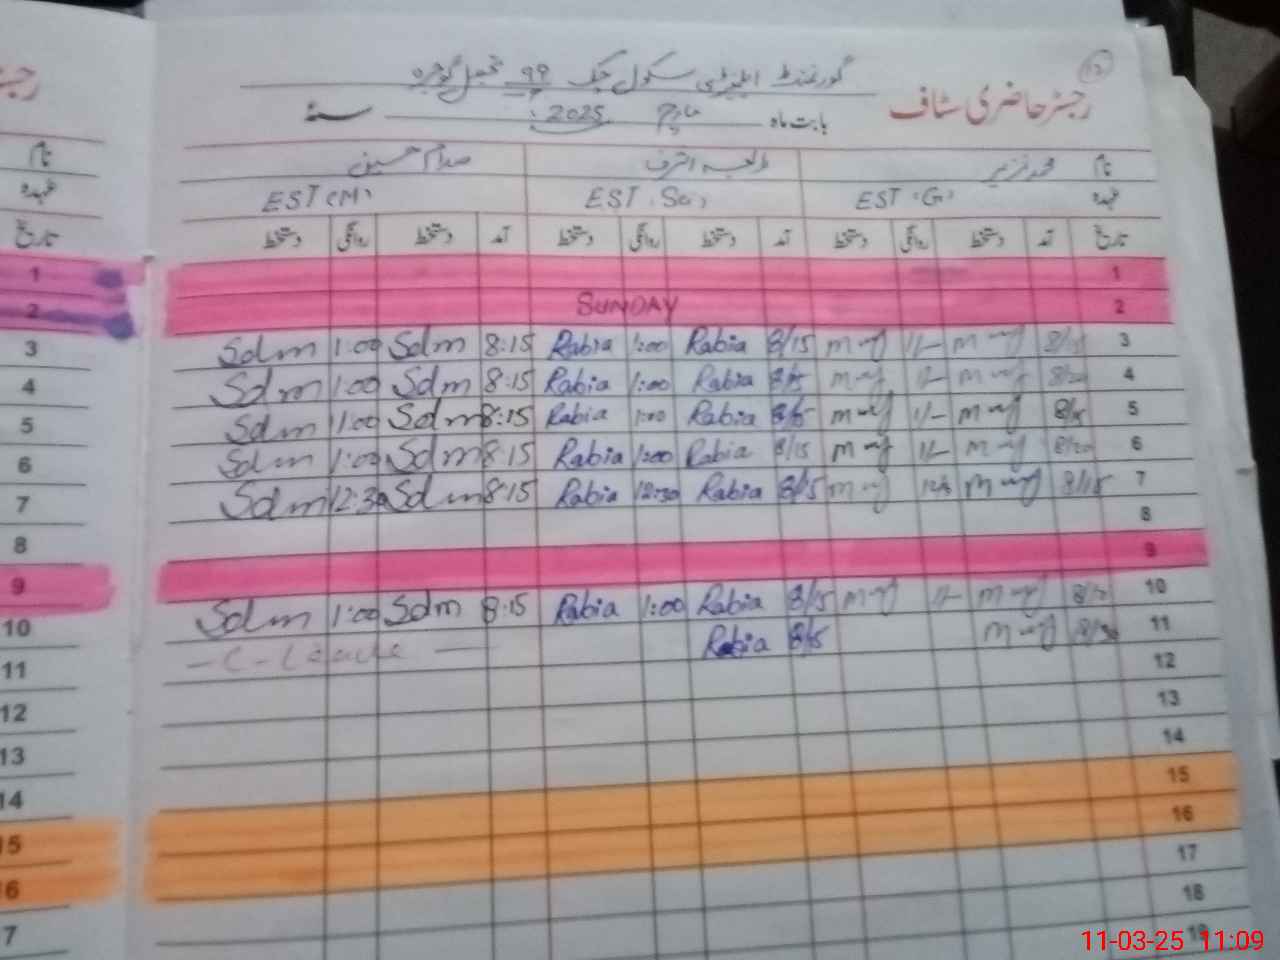 رجسٹر حاضری سٹاف
گورنمنٹ ایلیمنٹری سکول چک 99 تحصیل گوجرہ
بابت ماہ مارچ 2025 سنہ
نام محمد نزیر رابعہ اشرف صدام حسین
عہدہ EST (G) EST (Sc) EST (M)
تاریخ آمد دستخط روانگی دستخط آمد دستخط روانگی دستخط آمد دستخط روانگی دستخط
1
SUNDAY 2
Sdm 1:00 Sdm 8:15 Rabia 1:00 Rabia 8/15 1/- 8/15 3
Sdm 1:00 Sdm 8:15 Rabia 1:00 Rabia 8/15 1/- 8/20 4
Sdm 1:00 Sdm 8:15 Rabia 1:00 Rabia 8/15 1/- 8/15 5
Sdm 1:00 Sdm 8:15 Rabia 1:00 Rabia 8/15 1/- 8/20 6
Sdm 12:30 Sdm 8:15 Rabia 12:30 Rabia 8/15 8/15 7
8
9
Sdm 1:00 Sdm 8:15 Rabia 1:00 Rabia 8/15 1/- 10
- C - Leave - Rabia 8/15 11
12
13
14
15
16
17
18
19
نام
عہدہ
تاریخ
1
2
3
4
5
6
7
8
9
10
11
12
13
14
15
16
11-03-25 11:09